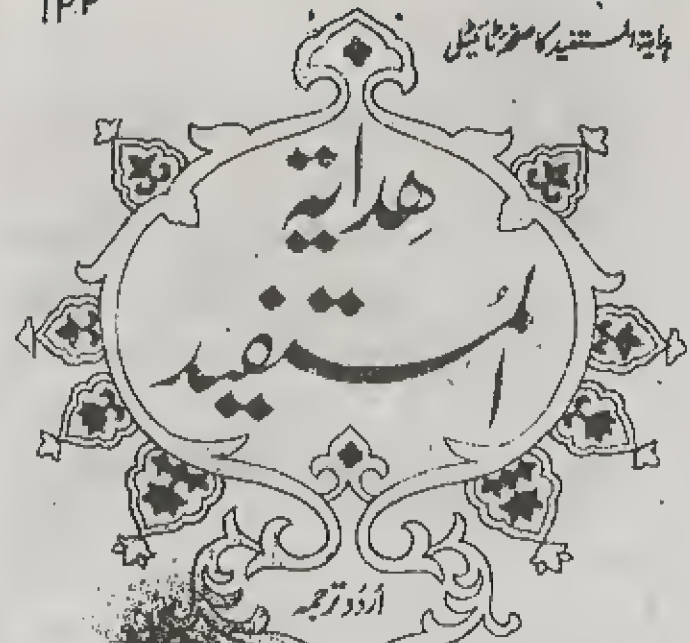 ۱۲۲
ہدایۃ المستفید کا صفحہ ٹائیٹل
هداية
المستفيد
اُردُو ترجمہ